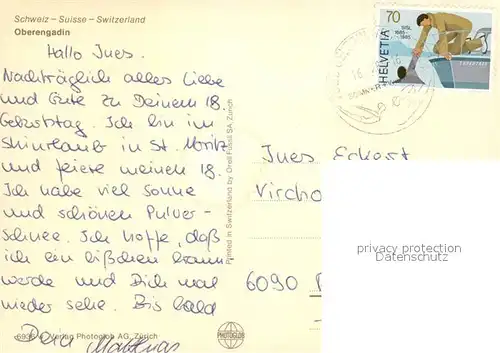 Schweiz – Suisse – Switzerland
Oberengadin
Hallo Ines.
Nachträglich alles Liebe
und Gute zu Deinem 18.
Geburtstag. Ich bin im
Skiurlaub in St. Moritz
und feiere meinen 18.
Ich habe viel Sonne
und schönen Pulver-
schnee. Ich hoffe, daß
ich ein bißchen braun
werde und Dich mal
wieder sehe. Bis bald
Dein Matthias
Verlag Photoglob AG, Zürich
Printed in Switzerland by Orell Füssli SA, Zürich
PHOTOGLOB
70
HELVETIA
1885-1985
Ines Eckert
Vircho
6090
privacy protection
Datenschutz